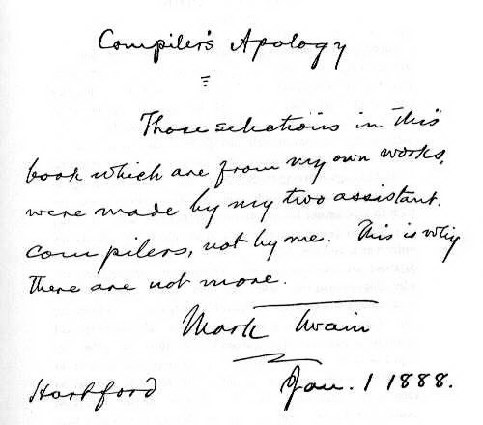 Compiler's Apology
Those selections in this
book which are from my own works,
were made by my two assistant
compilers, not by me. This is why
there are not more.
Mark Twain
Hartford Jan. 1 1888.